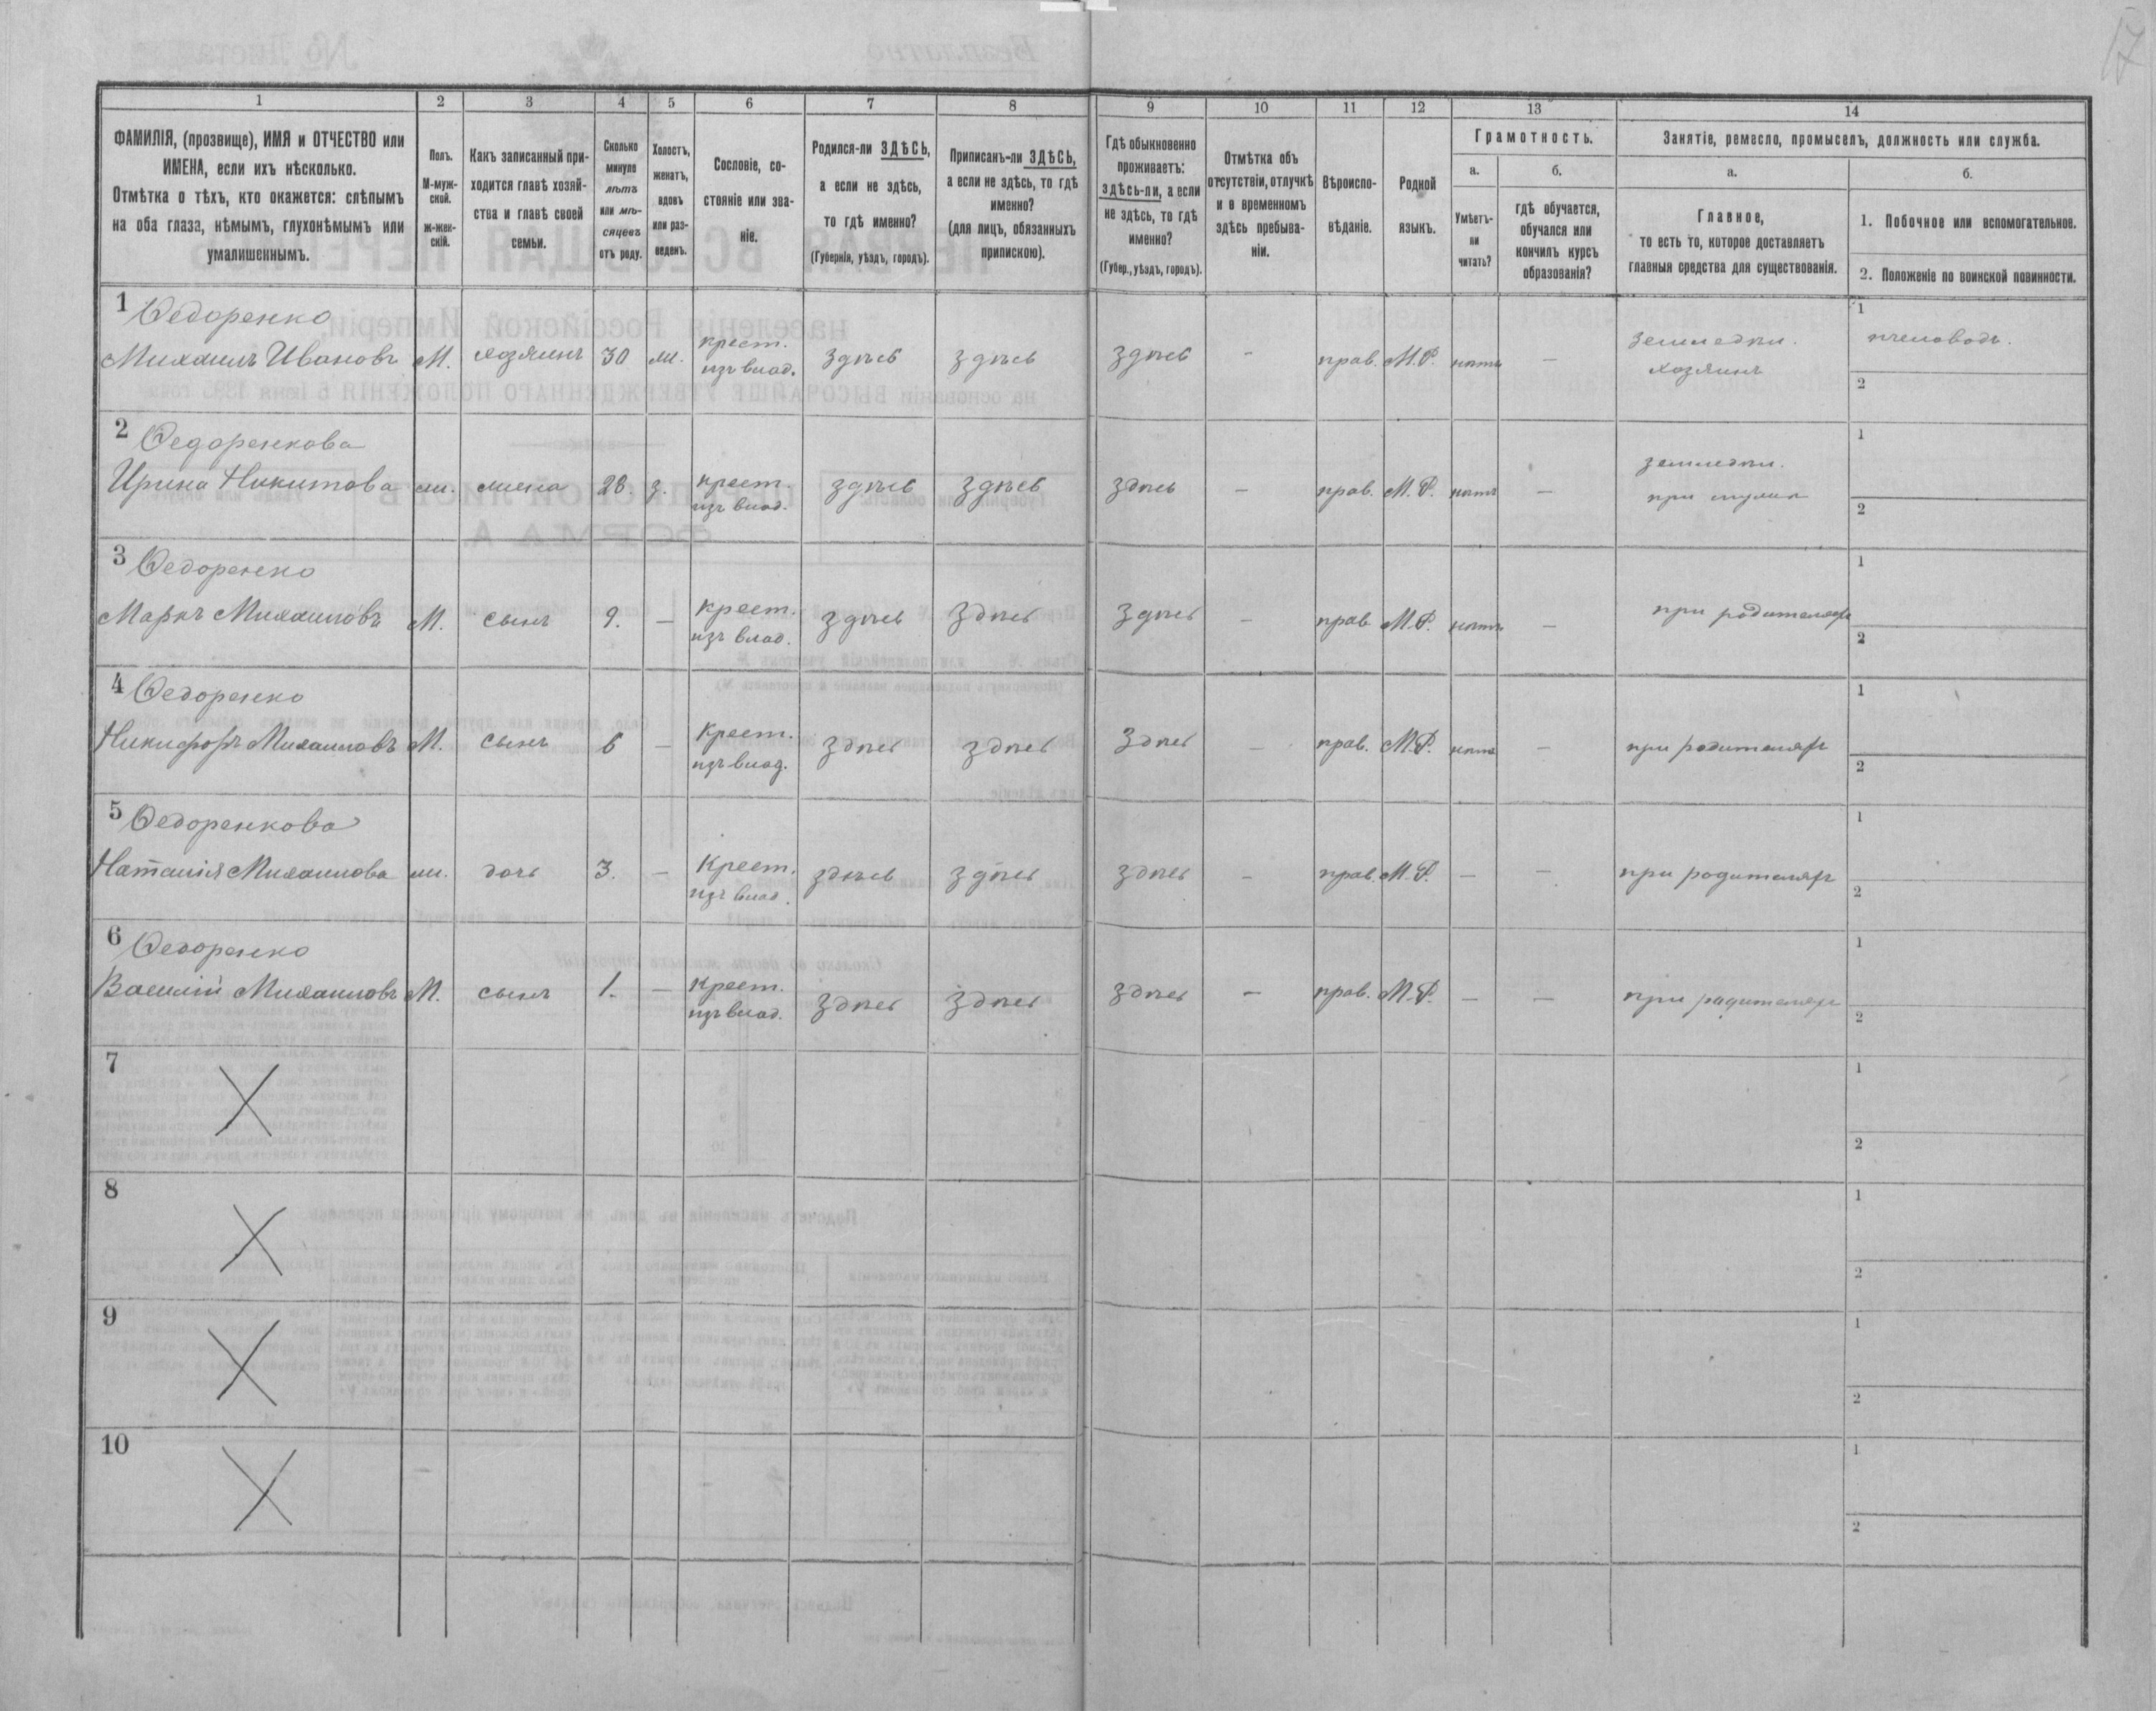 17
1 2 3 4 5 6 7 8 9 10 11 12 13 14
ФАМИЛІЯ, (прозвище), ИМЯ и ОТЧЕСТВО или
ИМЕНА, если ихъ нѣсколько.
Отмѣтка о тѣхъ, кто окажется: слѣпымъ
на оба глаза, нѣмымъ, глухонѣмымъ или
умалишеннымъ.
Полъ.
М-муж-
ской.
ж-жен-
скій.
Какъ записанный при-
ходится главѣ хозяй-
ства и главѣ своей
семьи.
Сколько
минуло
лѣтъ
или мѣ-
сяцевъ
отъ роду.
Холостъ,
женатъ,
вдовъ
или раз-
веденъ.
Сословіе, со-
стояніе или зва-
ніе.
Родился-ли ЗДѢСЬ,
а если не здѣсь,
то гдѣ именно?
(Губернія, уѣздъ, городъ).
Приписанъ-ли ЗДѢСЬ,
а если не здѣсь, то гдѣ
именно?
(для лицъ, обязанныхъ
припискою).
Гдѣ обыкновенно
проживаетъ:
здѣсь-ли, а если
не здѣсь, то гдѣ
именно?
(Губер., уѣздъ, городъ).
Отмѣтка объ
отсутствіи, отлучкѣ
и о временномъ
здѣсь пребыва-
ніи.
Вѣроиспо-
вѣданіе.
Родной
языкъ.
Грамотность.
а.
Умѣетъ-
ли
читать?
б.
гдѣ обучается,
обучался или
кончилъ курсъ
образованія?
Занятіе, ремесло, промыселъ, должность или служба.
а.
Главное,
то есть то, которое доставляетъ
главныя средства для существованія.
б.
1. Побочное или вспомогательное.
2. Положеніе по воинской повинности.
1 Федоренко
Михаилъ Ивановъ М. хозяинъ 30 ж. крест. изъ влад. здѣсь здѣсь здѣсь - прав. М.Р. нѣтъ — земледѣл. хозяинъ 1 пчеловодъ.
2
2 Федоренкова
Ирина Никитова ж. жена 28. з. крест. изъ влад. здѣсь здѣсь здѣсь — прав. М.Р. нѣтъ — земледѣл. при мужѣ 1
2
3 Федоренко
Маркъ Михаиловъ М. сынъ 9. — крест. изъ влад. здѣсь здѣсь здѣсь — прав М.Р. нѣтъ — при родителяхъ 1
2
4 Федоренко
Никифоръ Михаиловъ М. сынъ 6 — крест. изъ влад. здѣсь здѣсь здѣсь — прав. М.Р. нѣтъ — при родителяхъ 1
2
5 Федоренкова
Наталія Михаилова ж. дочь 3. — крест. изъ влад. здѣсь здѣсь здѣсь — прав. М.Р. — — при родителяхъ 1
2
6 Федоренко
Василій Михаиловъ М. сынъ 1. — крест. изъ влад. здѣсь здѣсь здѣсь — прав. М.Р. — — при родителяхъ 1
2
7 1
2
8 1
2
9 1
2
10 1
2